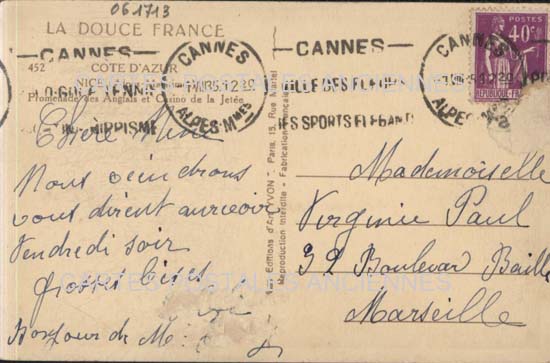 061713
LA DOUCE FRANCE
CANNES
CANNES
ALPES-Mmes
CANNES
VILLE DES FLEURS
LES SPORTS ELEGANTS
CANNES
ALPES-Mmes
POSTES
40c
452 CÔTE D'AZUR
NICE
Promenade des Anglais et Casino de la Jetée
GOLF TENNIS
HIPPISME
Chère Mine
Nous viendrons
vous dire un aurevoir
Vendredi soir
grosses bises
Bonjour de M
Les Editions d'Art YVON - Paris, 15, Rue Martel
Reproduction Interdite - Fabrication Française
Mademoiselle
Virginie Paul
32 Boulevar Baille
Marseille
CARTES POSTALES ANCIENNES
CARTES POSTALES ANCIENNES